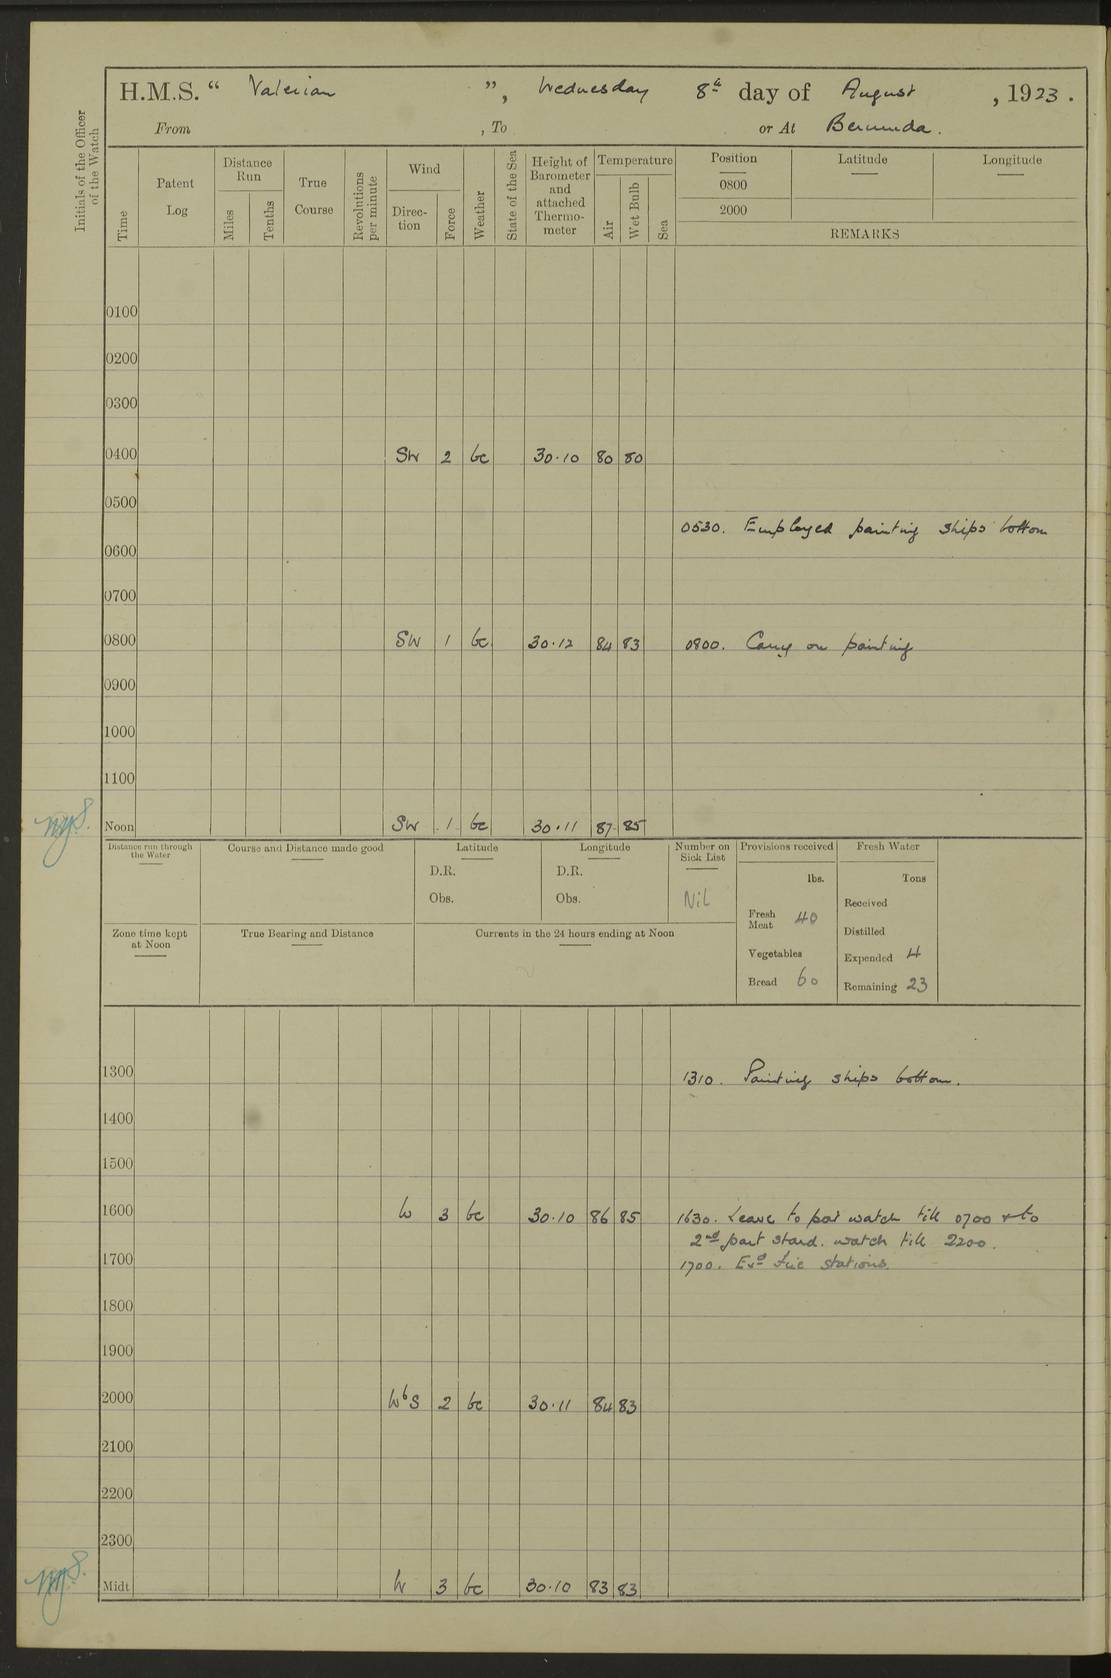 H.M.S. “ Valerian ”, Wednesday 8th day of August , 1923 .
From , To or At Bermuda .
Initials of the Officer of the Watch
Time
Patent Log
Distance Run
Miles
Tenths
True Course
Revolutions per minute
Wind
Direc-tion
Force
Weather
State of the Sea
Height of Barometer and attached Thermo-meter
Temperature
Air
Wet Bulb
Sea
Position Latitude Longitude
0800
2000
REMARKS
0100
0200
0300
0400 SW 2 bc 30.10 80 80
0500
0530. Employed painting ships bottom
0600
0700
0800 SW 1 bc 30.12 84 83 0800. Carry on painting
0900
1000
1100
Noon SW 1 bc 30.11 87 85
Distance run through the Water
Course and Distance made good
Latitude
D.R.
Obs.
Longitude
D.R.
Obs.
Number on Sick List
Nil
Provisions received
lbs.
Fresh Meat 40
Vegetables
Bread 60
Fresh Water
Tons
Received
Distilled
Expended 4
Remaining 23
Zone time kept at Noon
True Bearing and Distance
Currents in the 24 hours ending at Noon
1300 1310. Painting ships bottom.
1400
1500
1600 W 3 bc 30.10 86 85 1630. Leave to port watch till 0700 & to
2nd part stard. watch till 2200.
1700 1700. Exd fire stations.
1800
1900
2000 WbS 2 bc 30.11 84 83
2100
2200
2300
Midt W 3 bc 30.10 83 83